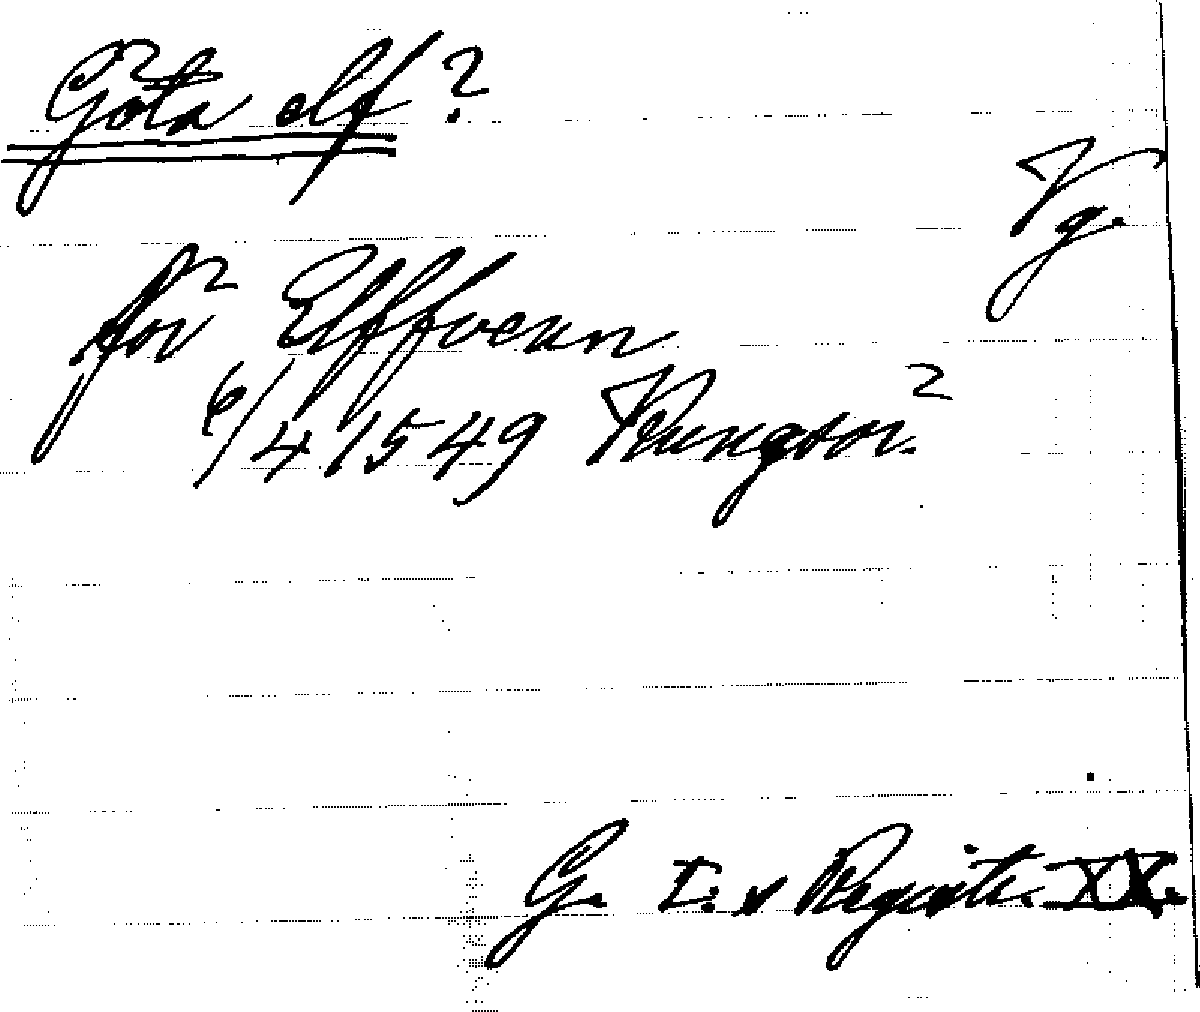 Göta elf?
Vg.
för Elffvean
6/4 1549 Kungsör.
G. I:s Registr. XX.